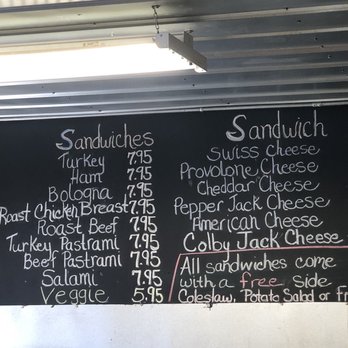 Sandwiches
Turkey 7.95
Ham 7.95
Bologna 7.95
Roast Chicken Breast 7.95
Roast Beef 7.95
Turkey Pastrami 7.95
Beef Pastrami 7.95
Salami 7.95
Veggie 5.95
Sandwich
Swiss Cheese
Provolone Cheese
Cheddar Cheese
Pepper Jack Cheese
American Cheese
Colby Jack Cheese
All sandwiches come
with a free side
Coleslaw, Potato Salad or Fr